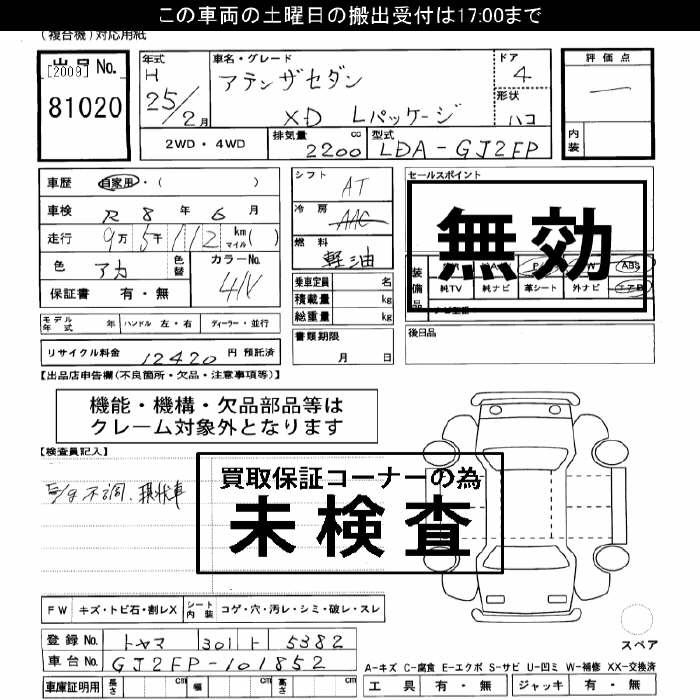 この車両の土曜日の搬出受付は17:00まで
(複合機)対応用紙
出品No.
[2009]
81020
年式
H
25/2月
車名・グレード
アテンザセダン
XD Lパッケージ
ドア
4
形状
ハコ
評価点
—
内装
2WD・4WD
排気量 2200 cc
型式 LDA-GJ2FP
車歴 自家用・( )
車検 R 8 年 6 月
走行 9万 5千 112 km マイル( )
色 アカ 色替
カラーNo. 41V
保証書 有・無
シフト AT
冷房 AAC
燃料 軽油
乗車定員 名
積載量 kg
総重量 kg
書類期限
月 日
セールスポイント
無効
装備品
ABS
純TV 純ナビ 革シート 外ナビ エアB
後日品
モデル年式 年 ハンドル 左・右 ディーラー・並行
リサイクル料金 12420 円 預託済
【出品店申告欄(不良箇所・欠品・注意事項等)】
機能・機構・欠品部品等は
クレーム対象外となります
【検査員記入】
不調、現状車
買取保証コーナーの為
未検査
FW キズ・トビ石・割レX シート内装 コゲ・穴・汚レ・シミ・破レ・スレ
登録No. トヤマ 301 ト 5382
車台No. GJ2FP-101852
車庫証明用 長さ cm 幅 cm 高さ cm
スペア
A-キズ C-腐食 E-エクボ S-サビ U-凹ミ W-補修 XX-交換済
工具 有・無 ジャッキ 有・無